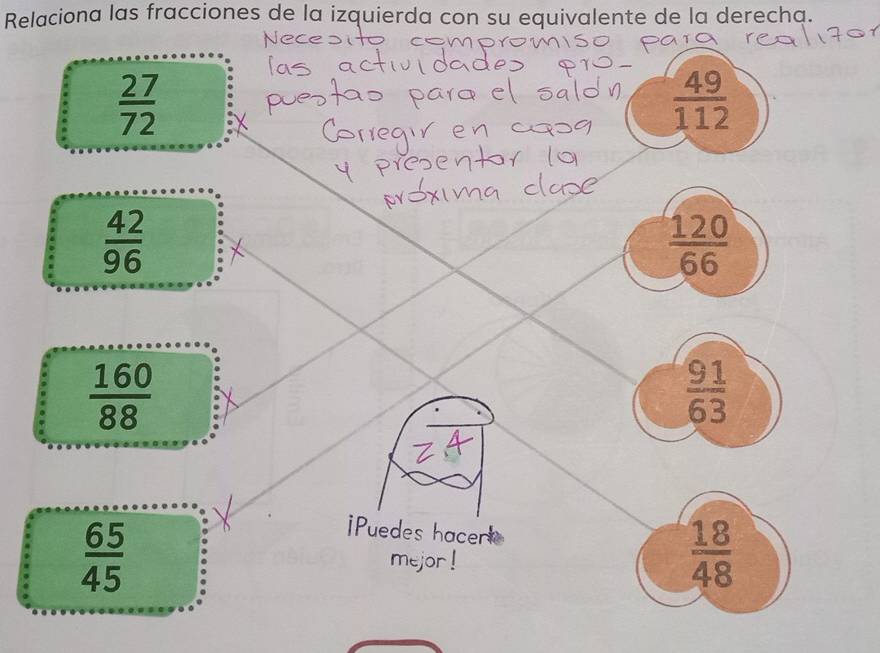 Relaciona las fracciones de la izquierda con su equivalente de la derecha.
Necesito compromiso para realizar
las actividades pro-
puestas para el salón
Corregir en casa
y presentar la
próxima clase
27/72
49/112
42/96
120/66
160/88
91/63
65/45
18/48
¡Puedes hacerlo
mejor!